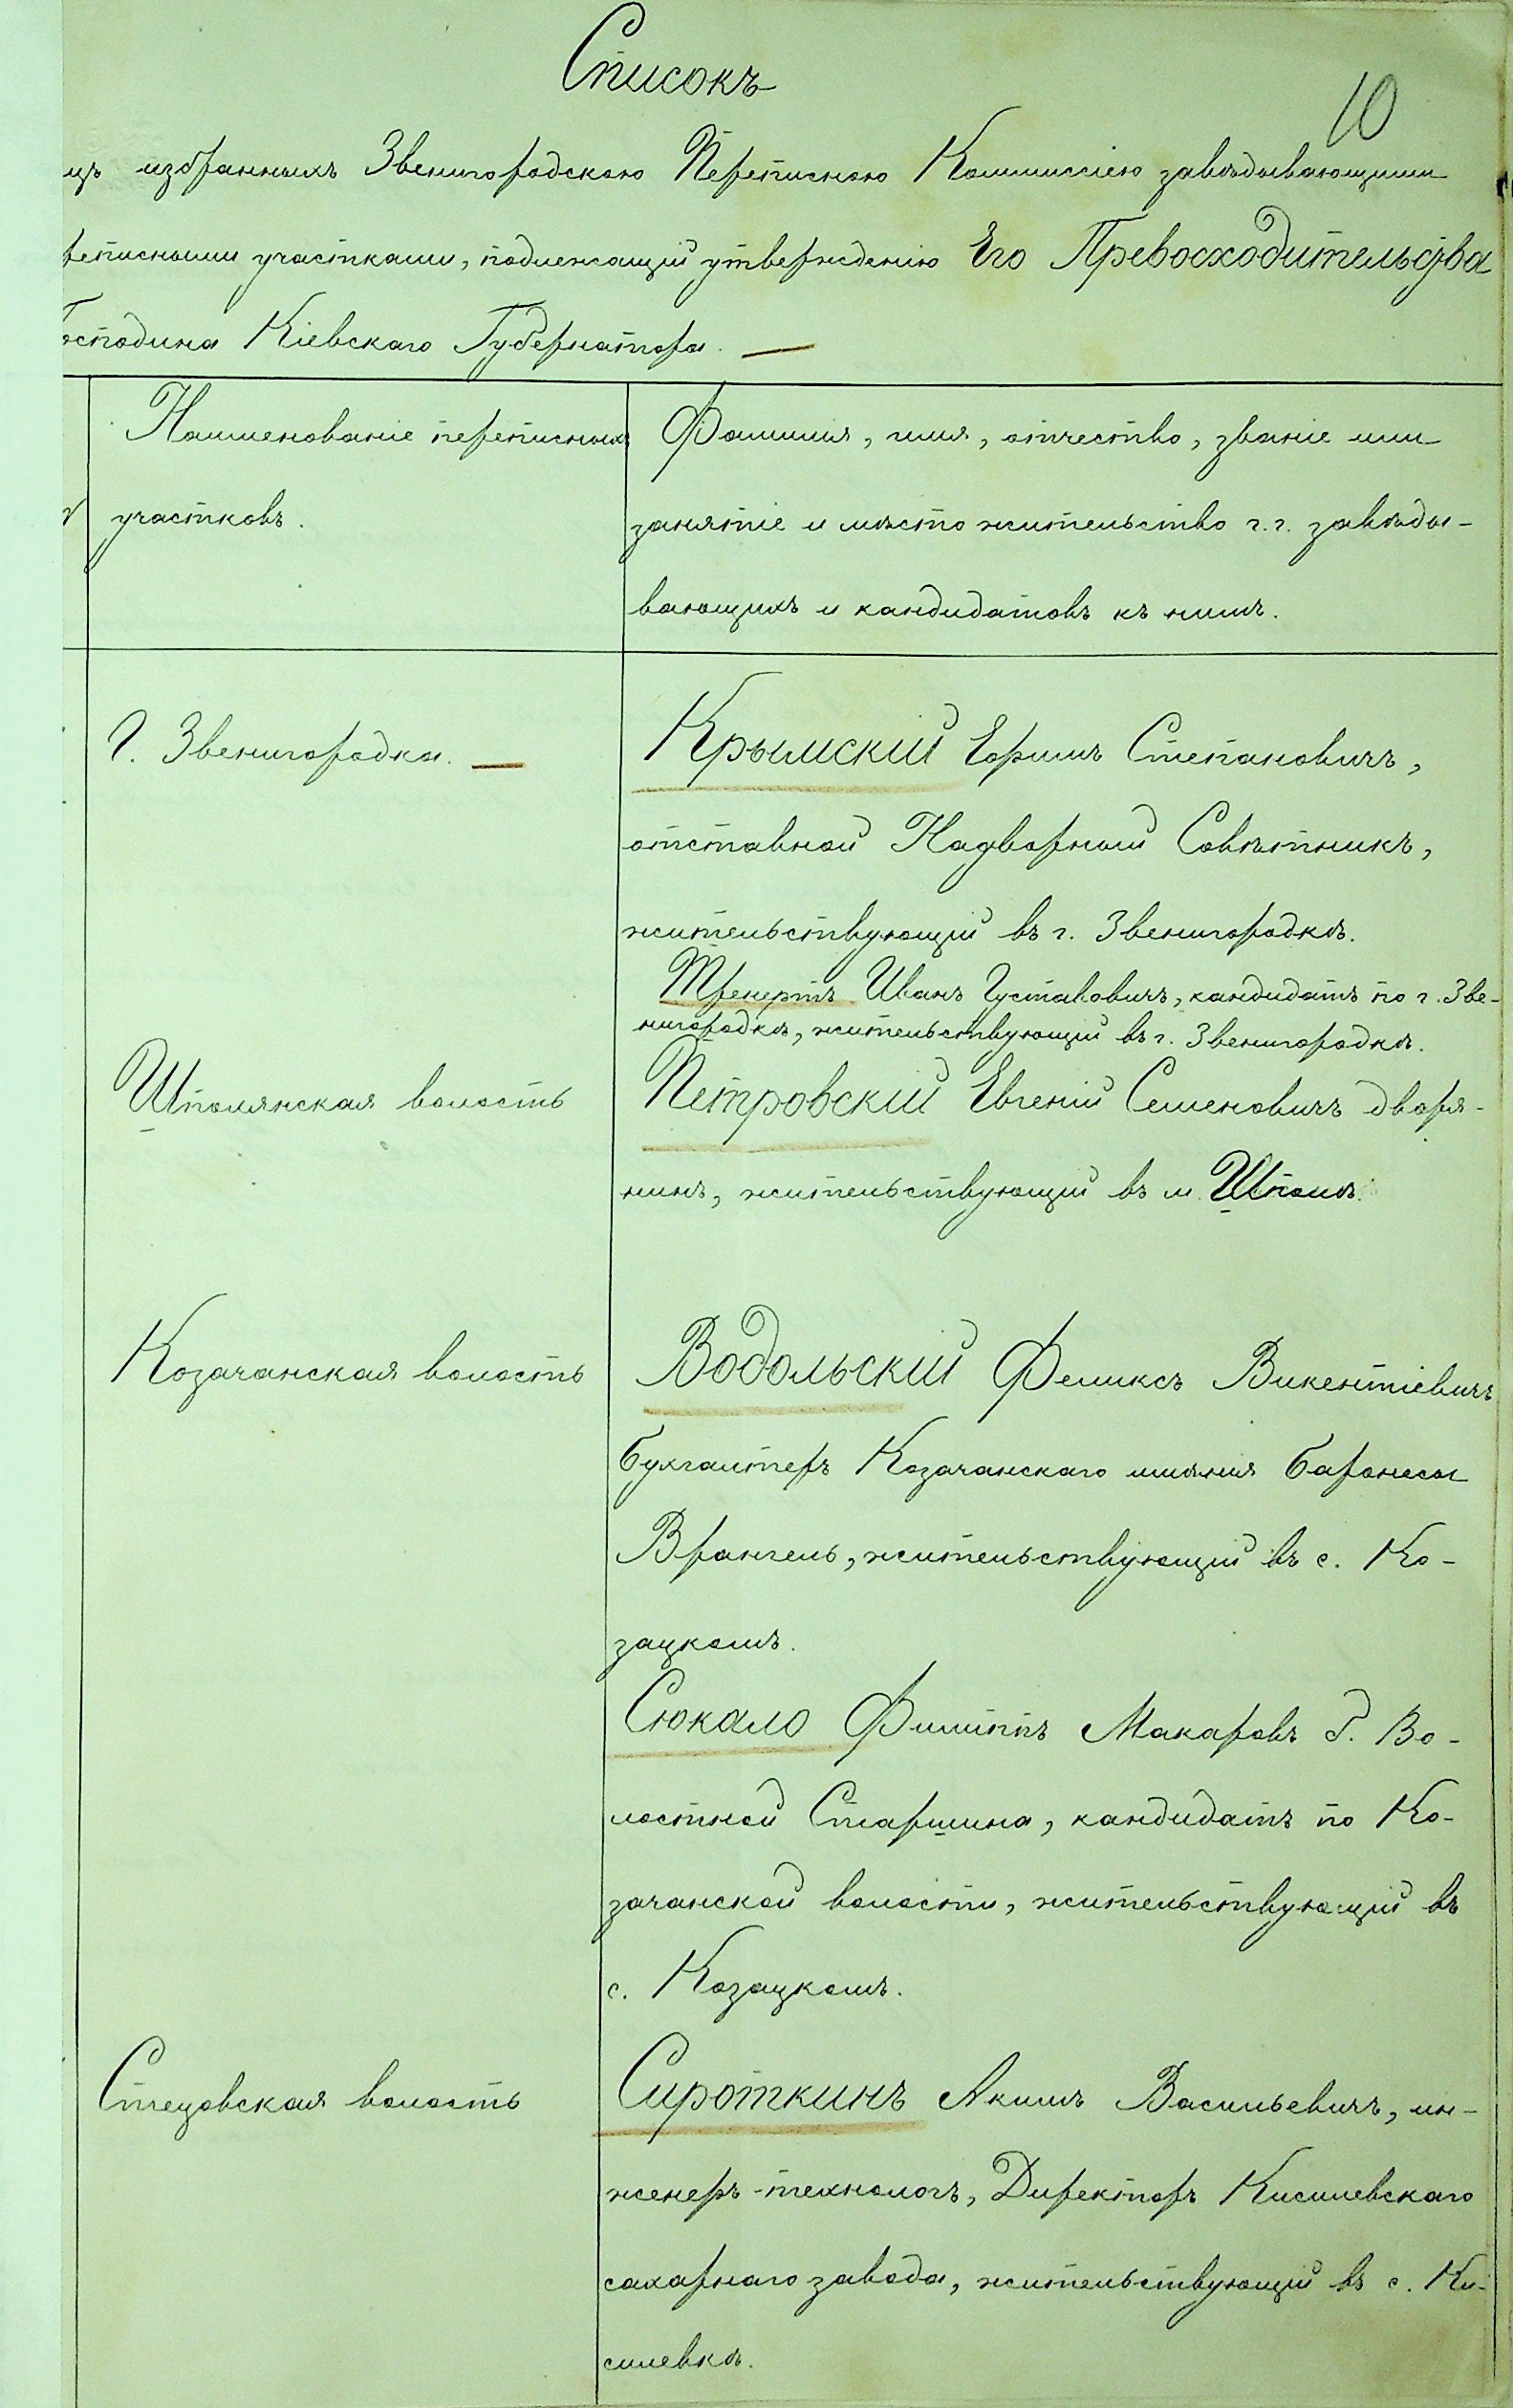 Списокъ
10
цъ избранныхъ Звенигородскою Переписною Коммиссіею завѣдывающими
реписными участками, подлежащій утвержденію Его Превосходительства
Господина Кіевскаго Губернатора.
Наименованіе переписныхъ
участковъ.
Фамилія, имя, отчество, званіе или
занятіе и мѣсто жительство г.г. завѣды-
вающихъ и кандидатовъ къ нимъ.
Г. Звенигородка.
Крымскій Ефимъ Степановичъ,
отставной Надворный Совѣтникъ,
жительствующій въ г. Звенигородкѣ.
Тренертъ Иванъ Густавовичъ, кандидатъ по г. Зве-
нигородкѣ, жительствующій въ г. Звенигородкѣ.
Шполянская волость
Петровскій Евгеній Семеновичъ дворя-
нинъ, жительствующій въ м. Шполѣ.
Козачанская волость
Водольскій Феликсъ Викентіевичъ
бухгалтеръ Козачанскаго имѣнія баронесы
Врангель, жительствующій въ с. Ко-
зацкомъ.
Сюкало Филиппъ Макаровъ д. Во-
лостной Старшина, кандидатъ по Ко-
зачанской волости, жительствующій въ
с. Козацкомъ.
Стецовская волость
Сироткинъ Акимъ Васильевичъ, ин-
женеръ-технологъ, Директоръ Кисилевскаго
сахарнаго завода, жительствующій въ с. Ки-
силевкѣ.